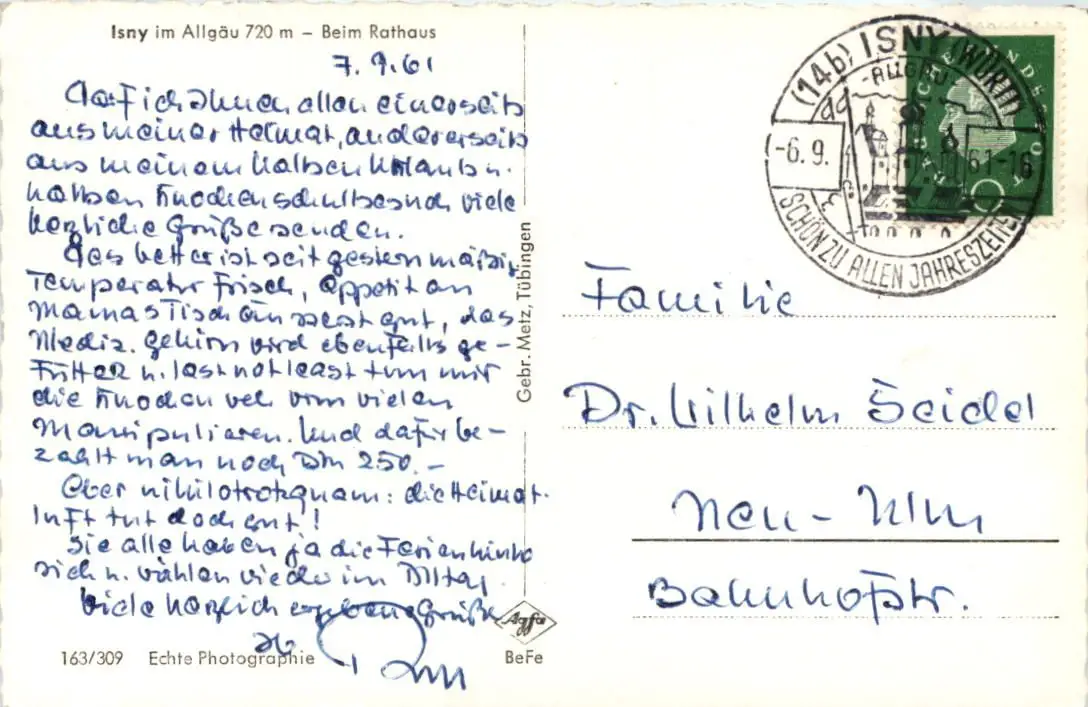 Isny im Allgäu 720 m – Beim Rathaus
7.9.61
Darf ich Ihnen allen einerseits
aus meiner Heimat, andererseits
aus meinem halben Urlaub u.
halben Knochenschulbesuch viele
herzliche Grüße senden.
Das Wetter ist seit gestern mäßig,
Temperatur frisch, Appetit an
Mamas Tisch äusserst gut, das
Mediz. Gehirn wird ebenfalls ge-
füttert u. last not least tun mir
die Knochen weh vom vielen
Manipulieren. Und dafür be-
zahlt man noch DM 250.-
Aber nihilotrotzquam: die Heimat-
luft tut doch gut!
Sie alle haben ja die Ferien hinter
sich u. wühlen wieder im Alltag.
Viele herzlich ergebene Grüße
Ihr
163/309 Echte Photographie
Agfa
BeFe
Gebr. Metz, Tübingen
(14b) ISNY (WÜRTT)
-ALLGÄU-
-6.9.61-16
SCHÖN ZU ALLEN JAHRESZEITEN
DEUTSCHE BUNDESPOST
Familie
Dr. Wilhelm Seidel
Neu-Ulm
Bahnhofstr.